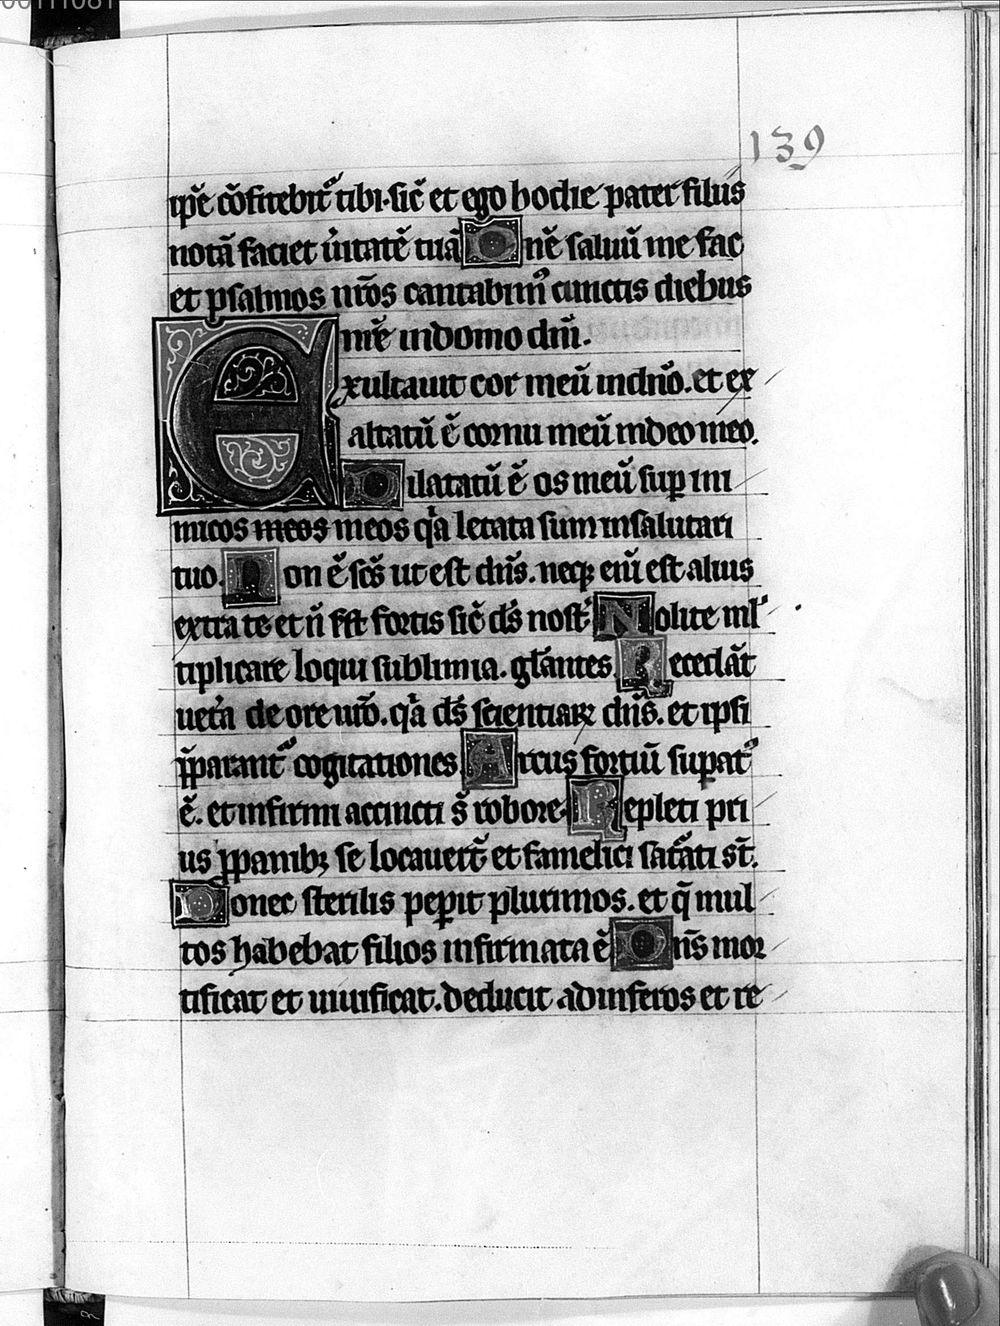 139
ip̄e cōfitebit᷑ tibi. sic̄ et ego hodie pater filiis
notā faciet ūitatē tuā Dn̄e saluū me fac
et psalmos nr̄os cantabim᷒ cunctis diebus
uite in domo dn̄i.
Exultauit cor meū in dn̄o. et ex
altatū ē cornu meū in deo meo.
Dilatatū ē os meū sup ini
micos meos meos q̄a letata sum in salutari
tuo. Non ē sc̄s ut est dn̄s. neq; eni̅ est alius
extra te et n̄ est fortis sic̄ ds̄ nost̄ Nolite ml᷑
tiplicare loqui sublimia. gl̄antes Recedāt
uet̄a de ore ur̄o. q̄a ds̄ scientiaꝝ dn̄s. et ipsi
p̄parant᷑ cogitationes Arcus fortiū supat᷒
ē. et infirmi accincti s̄ robore. Repleti pri
us ꝓ panibꝫ se locauer̄t et famelici sat̄ati st̄.
Donec sterilis peperit plurimos. et q̄ mul
tos habebat filios infirmata ē Dn̄s mor
tificat et uiuificat. deducit ad inferos et re